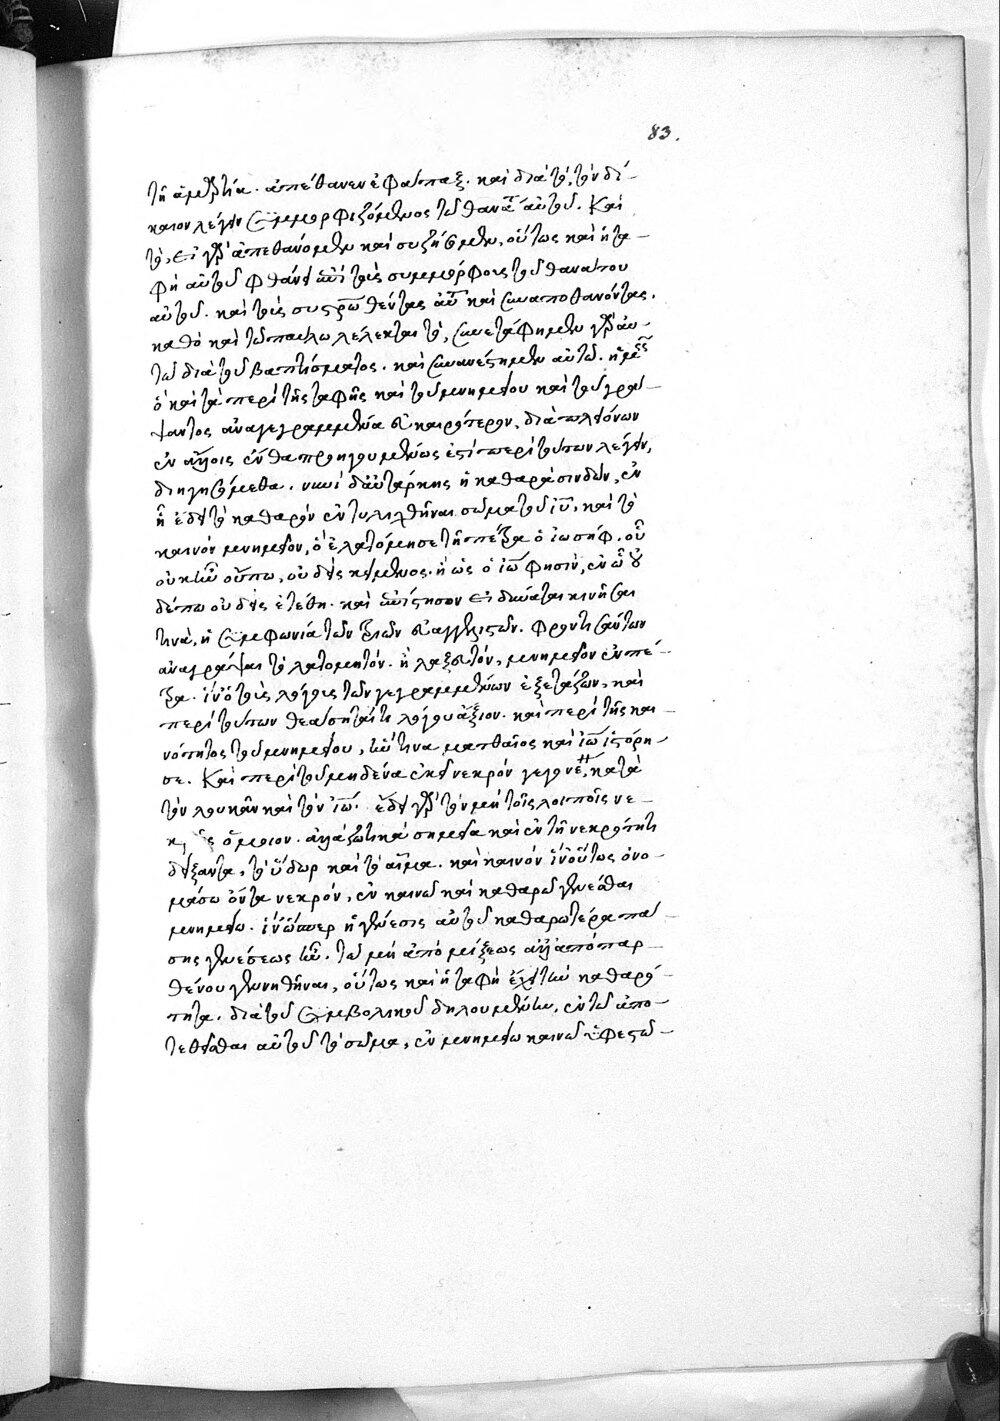 83.
τῇ ἁμαρτίᾳ. ἀπέθανεν ἐφάπαξ. καὶ διὰ τὸ, τὸν δί-
καιον λέγειν συμμορφιζόμενος τῷ θανάτῳ αὐτοῦ. Καὶ
τὸ, εἰ γὰρ ἀπεθάνομεν καὶ συζήσομεν, οὕτως καὶ ἡ τα-
φὴ αὐτοῦ φθάνει ἐπὶ τοὺς συμμόρφους τοῦ θανάτου
αὐτοῦ. καὶ τοὺς συσταυρωθέντας αὐτῷ καὶ συναποθανόντας.
καθὸ καὶ τῷ παύλῳ λέλεκται τὸ, συνετάφημεν γὰρ αὐ-
τῷ διὰ τοῦ βαπτίσματος. καὶ συνανέστημεν αὐτῷ. ἡμεῖς
ὁ καὶ τὰ περὶ τῆς ταφῆς καὶ τοῦ μνημείου καὶ τοῦ γρά-
ψαντος ἀναγεγραμμένα εὐκαιρότερον, διὰ πλειόνων
ἐν ἄλλοις ἔνθα προηγουμένως ἐστὶ περὶ τούτων λέγειν,
διηγησόμεθα. νυνὶ δ' αὐτάρκης ἡ καθαρὰ σινδών, ἐν
ᾗ ἔδει τὸ καθαρὸν ἐντυλιχθῆναι σῶμα τοῦ ιυ, καὶ τὸ
καινὸν μνημεῖον, ὃ ἐλατόμησε τῇ πέτρα ὁ ἰωσήφ. οὗ
οὐκ ἦν οὔπω, οὐδεὶς κείμενος. ἢ ὡς ὁ ἰω φησὶν, ἐν ᾧ οὐ
δέπω οὐδεὶς ἐτέθη. καὶ ἐπίστησον εἰ δύναται κινῆσαι
τινὰ, ἡ συμφωνία τῶν τριῶν εὐαγγελιστῶν. φροντισάντων
ἀναγράψαι τὸ λατομητόν. ἢ λαξευτόν, μνημεῖον ἐν πέ-
τρα. ἵν' ὁ τοὺς λόγους τῶν γεγραμμένων ἐξετάζων, καὶ
περὶ τούτων θεάσηταί τι λόγου ἄξιον. καὶ περὶ τῆς και-
νότητος τοῦ μνημείου, ἥντινα ματθαῖος καὶ ἰω ἱστόρη-
σε. Καὶ περὶ τοῦ μηδένα ἐκεῖ νεκρὸν γεγονέναι, κατὰ
τὸν λουκᾶν καὶ τὸν ἰω. ἔδει γὰρ τὸν μὴ τοῖς λοιποῖς νε-
κροῖς ὅμοιον. ἀλλὰ ζωτικὰ σημεῖα καὶ ἐν τῇ νεκρότητι
δείξαντα, τὸ ὕδωρ καὶ τὸ αἷμα. καὶ καινὸν ἵν' οὕτως ὀνο-
μάσω ὄντα νεκρόν, ἐν καινῷ καὶ καθαρῷ γενέσθαι
μνημείῳ. ἵν' ὥσπερ ἡ γένεσις αὐτοῦ καθαρωτέρα πά-
σης γενέσεως ἦν. τῷ μὴ ἀπὸ μείξεως ἀλλ' ἀπὸ παρ-
θένου γεννηθῆναι, οὕτως καὶ ἡ ταφὴ ἔχει τὴν καθαρό-
τητα. διὰ τοῦ συμβολικοῦ δηλουμένην, ἐν τῷ ἀπο-
τεθεῖσθαι αὐτοῦ τὸ σῶμα, ἐν μνημείῳ καινῷ ὑφεστῶ-